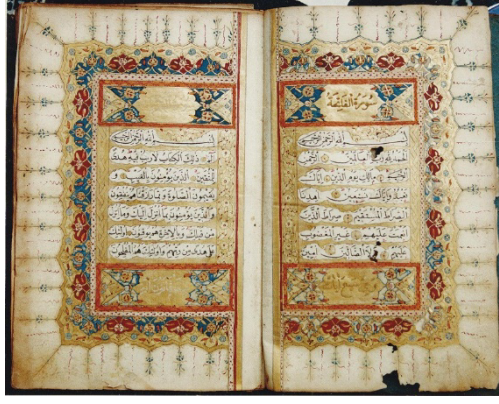 سورة الفاتحة
بسم الله الرحمن الرحيم
الحمد لله رب العالمين الرحمن
الرحيم مالك يوم الدين اياك
نعبد واياك نستعين اهدنا
الصراط المستقيم صراط الذين
انعمت عليهم غير المغضوب
عليهم ولا الضالين امين
بسم الله الرحمن الرحيم
الم ذلك الكتاب لا ريب فيه هدى
للمتقين الذين يؤمنون بالغيب و
يقيمون الصلوة ومما رزقناهم ينفقون
والذين يؤمنون بما انزل اليك وما انزل
من قبلك وبالاخرة هم يوقنون اولئك
على هدى من ربهم واولئك هم المفلحون